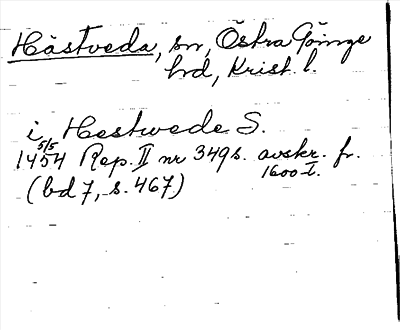 Hästveda, sn, Östra Göinge
hd, Krist. l.
i Hestwede S.
5/5
1454 Rep. II nr 349 s. avskr. fr.
1600-t.
(bd 7, s. 467)